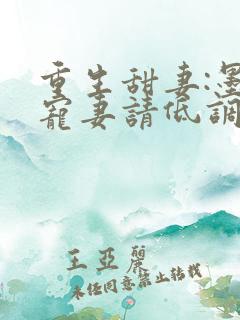 重生甜妻:墨
寵妻請低調
王亞麗
未经同意禁止转载